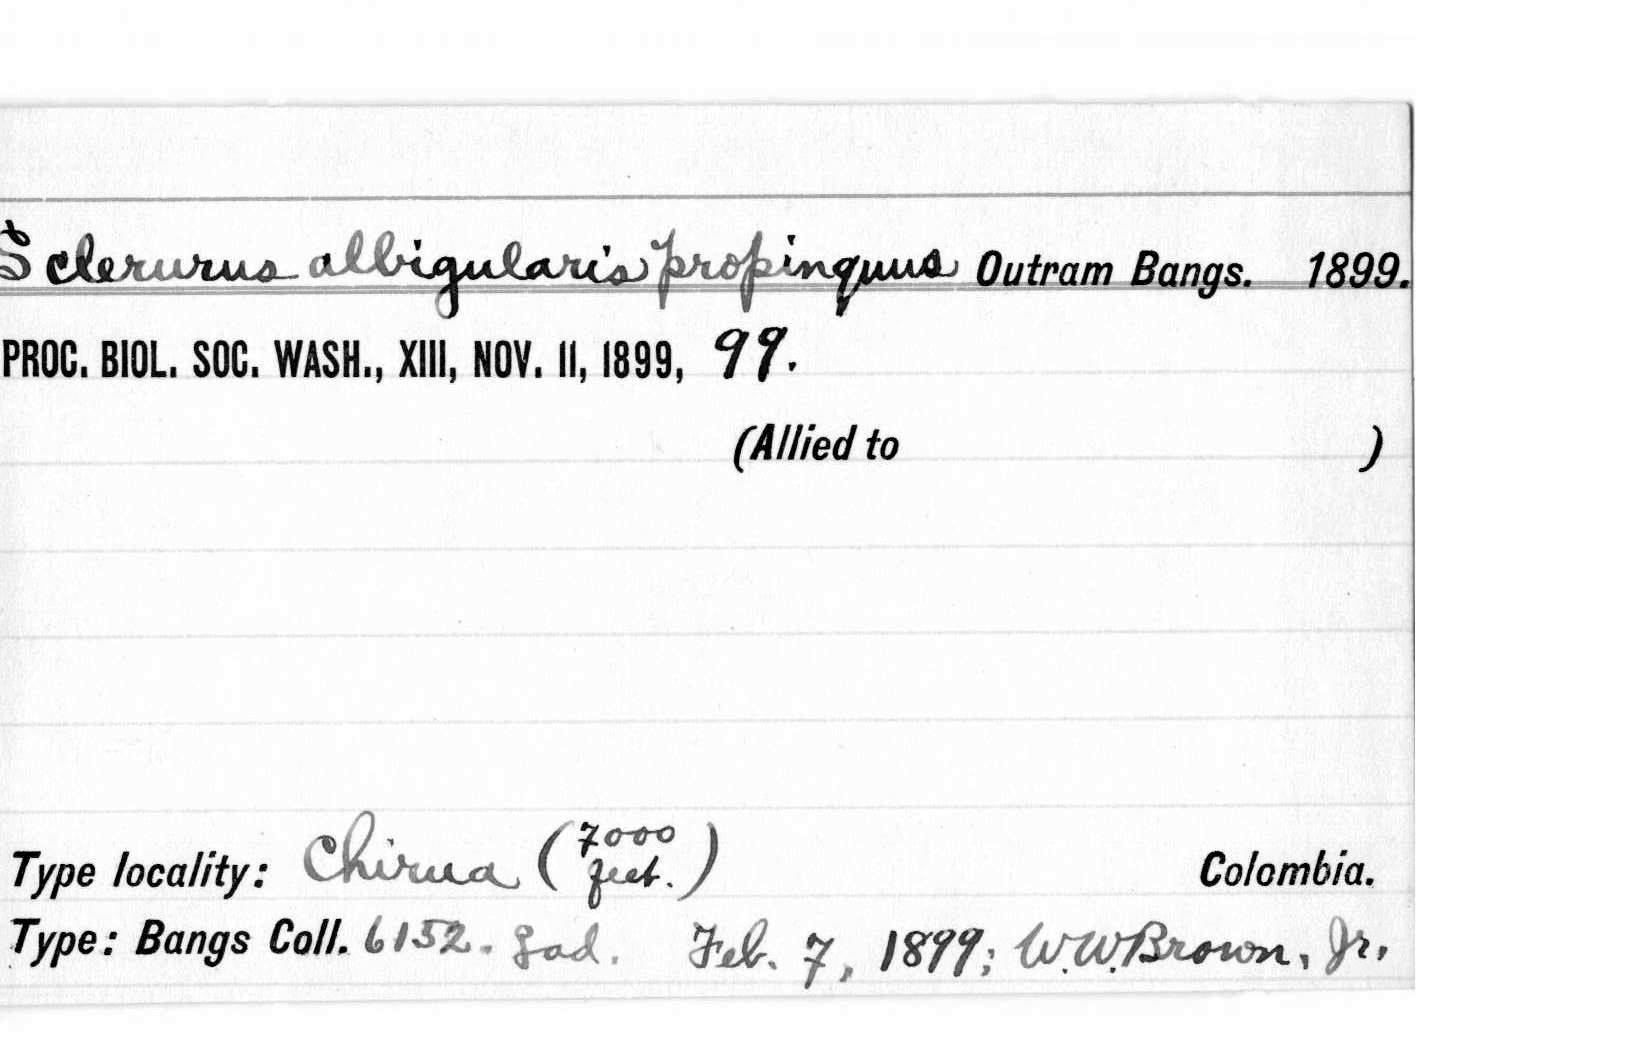 Sclerurus albigularis propinquus Outram Bangs. 1899.
PROC. BIOL. SOC. WASH., XIII, NOV. 11, 1899, 99.
(Allied to )
Type locality: Chirua (7000 feet.) Colombia.
Type: Bangs Coll. 6152. ad. Feb. 7, 1899; W.W. Brown, Jr.